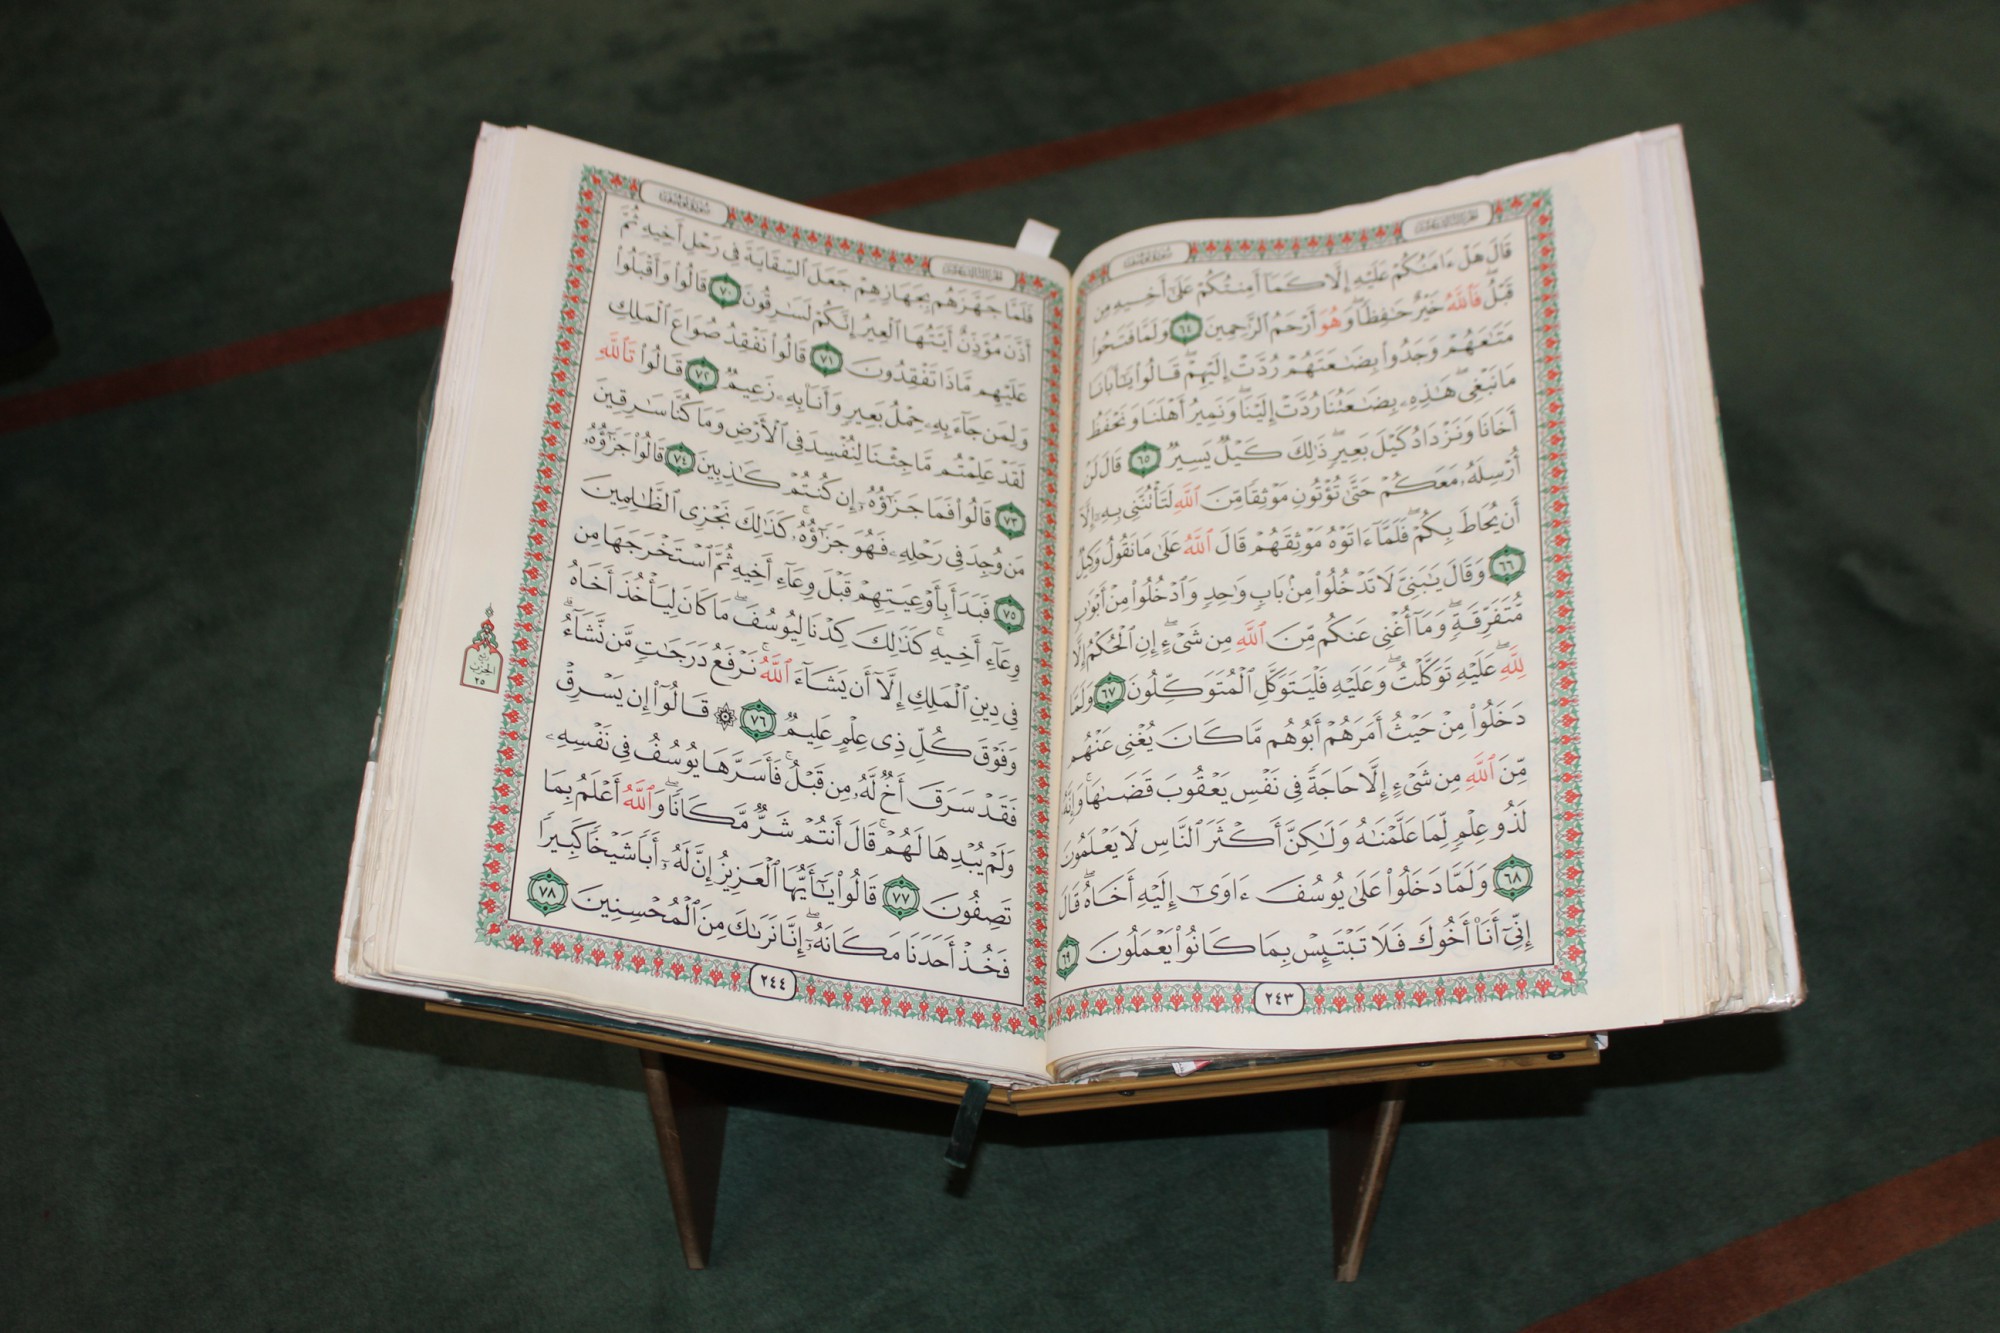 سورة يوسف
الجزء الثالث عشر
قَالَ هَلْ ءَامَنُكُمْ عَلَيْهِ إِلَّا كَمَآ أَمِنتُكُمْ عَلَىٰٓ أَخِيهِ مِن
قَبْلُ ۖ فَٱللَّهُ خَيْرٌ حَـٰفِظًا ۖ وَهُوَ أَرْحَمُ ٱلرَّٰحِمِينَ ٦٤ وَلَمَّا فَتَحُوا۟
مَتَـٰعَهُمْ وَجَدُوا۟ بِضَـٰعَتَهُمْ رُدَّتْ إِلَيْهِمْ ۖ قَالُوا۟ يَـٰٓأَبَانَا
مَا نَبْغِى ۖ هَـٰذِهِۦ بِضَـٰعَتُنَا رُدَّتْ إِلَيْنَا ۖ وَنَمِيرُ أَهْلَنَا وَنَحْفَظُ
أَخَانَا وَنَزْدَادُ كَيْلَ بَعِيرٍ ۖ ذَٰلِكَ كَيْلٌ يَسِيرٌ ٦٥ قَالَ لَنْ
أُرْسِلَهُۥ مَعَكُمْ حَتَّىٰ تُؤْتُونِ مَوْثِقًا مِّنَ ٱللَّهِ لَتَأْتُنَّنِى بِهِۦٓ إِلَّآ
أَن يُحَاطَ بِكُمْ ۖ فَلَمَّآ ءَاتَوْهُ مَوْثِقَهُمْ قَالَ ٱللَّهُ عَلَىٰ مَا نَقُولُ وَكِيلٌ
٦٦ وَقَالَ يَـٰبَنِىَّ لَا تَدْخُلُوا۟ مِنۢ بَابٍ وَٰحِدٍ وَٱدْخُلُوا۟ مِنْ أَبْوَٰبٍ
مُّتَفَرِّقَةٍ ۖ وَمَآ أُغْنِى عَنكُم مِّنَ ٱللَّهِ مِن شَىْءٍ ۖ إِنِ ٱلْحُكْمُ إِلَّا
لِلَّهِ ۖ عَلَيْهِ تَوَكَّلْتُ ۖ وَعَلَيْهِ فَلْيَتَوَكَّلِ ٱلْمُتَوَكِّلُونَ ٦٧ وَلَمَّا
دَخَلُوا۟ مِنْ حَيْثُ أَمَرَهُمْ أَبُوهُم مَّا كَانَ يُغْنِى عَنْهُم
مِّنَ ٱللَّهِ مِن شَىْءٍ إِلَّا حَاجَةً فِى نَفْسِ يَعْقُوبَ قَضَىٰهَا ۚ وَإِنَّهُۥ
لَذُو عِلْمٍ لِّمَا عَلَّمْنَـٰهُ وَلَـٰكِنَّ أَكْثَرَ ٱلنَّاسِ لَا يَعْلَمُونَ
٦٨ وَلَمَّا دَخَلُوا۟ عَلَىٰ يُوسُفَ ءَاوَىٰٓ إِلَيْهِ أَخَاهُ ۖ قَالَ
إِنِّىٓ أَنَا۠ أَخُوكَ فَلَا تَبْتَئِسْ بِمَا كَانُوا۟ يَعْمَلُونَ ٦٩
٢٤٣
سورة يوسف
الجزء الثالث عشر
فَلَمَّا جَهَّزَهُم بِجَهَازِهِمْ جَعَلَ ٱلسِّقَايَةَ فِى رَحْلِ أَخِيهِ ثُمَّ
أَذَّنَ مُؤَذِّنٌ أَيَّتُهَا ٱلْعِيرُ إِنَّكُمْ لَسَـٰرِقُونَ ٧٠ قَالُوا۟ وَأَقْبَلُوا۟
عَلَيْهِم مَّاذَا تَفْقِدُونَ ٧١ قَالُوا۟ نَفْقِدُ صُوَاعَ ٱلْمَلِكِ
وَلِمَن جَآءَ بِهِۦ حِمْلُ بَعِيرٍ وَأَنَا۠ بِهِۦ زَعِيمٌ ٧٢ قَالُوا۟ تَٱللَّهِ
لَقَدْ عَلِمْتُم مَّا جِئْنَا لِنُفْسِدَ فِى ٱلْأَرْضِ وَمَا كُنَّا سَـٰرِقِينَ
٧٣ قَالُوا۟ فَمَا جَزَٰٓؤُهُۥٓ إِن كُنتُمْ كَـٰذِبِينَ ٧٤ قَالُوا۟ جَزَٰٓؤُهُۥ
مَن وُجِدَ فِى رَحْلِهِۦ فَهُوَ جَزَٰٓؤُهُۥ ۚ كَذَٰلِكَ نَجْزِى ٱلظَّـٰلِمِينَ
٧٥ فَبَدَأَ بِأَوْعِيَتِهِمْ قَبْلَ وِعَآءِ أَخِيهِ ثُمَّ ٱسْتَخْرَجَهَا مِن
وِعَآءِ أَخِيهِ ۚ كَذَٰلِكَ كِدْنَا لِيُوسُفَ ۖ مَا كَانَ لِيَأْخُذَ أَخَاهُ
فِى دِينِ ٱلْمَلِكِ إِلَّآ أَن يَشَآءَ ٱللَّهُ ۚ نَرْفَعُ دَرَجَـٰتٍ مَّن نَّشَآءُ ۗ
وَفَوْقَ كُلِّ ذِى عِلْمٍ عَلِيمٌ ٧٦ ۞ قَالُوٓا۟ إِن يَسْرِقْ
فَقَدْ سَرَقَ أَخٌ لَّهُۥ مِن قَبْلُ ۚ فَأَسَرَّهَا يُوسُفُ فِى نَفْسِهِۦ
وَلَمْ يُبْدِهَا لَهُمْ ۚ قَالَ أَنتُمْ شَرٌّ مَّكَانًا ۖ وَٱللَّهُ أَعْلَمُ بِمَا
تَصِفُونَ ٧٧ قَالُوا۟ يَـٰٓأَيُّهَا ٱلْعَزِيزُ إِنَّ لَهُۥٓ أَبًا شَيْخًا كَبِيرًا
فَخُذْ أَحَدَنَا مَكَانَهُۥٓ ۖ إِنَّا نَرَىٰكَ مِنَ ٱلْمُحْسِنِينَ ٧٨
٢٤٤
ربع
الحزب
٢٥